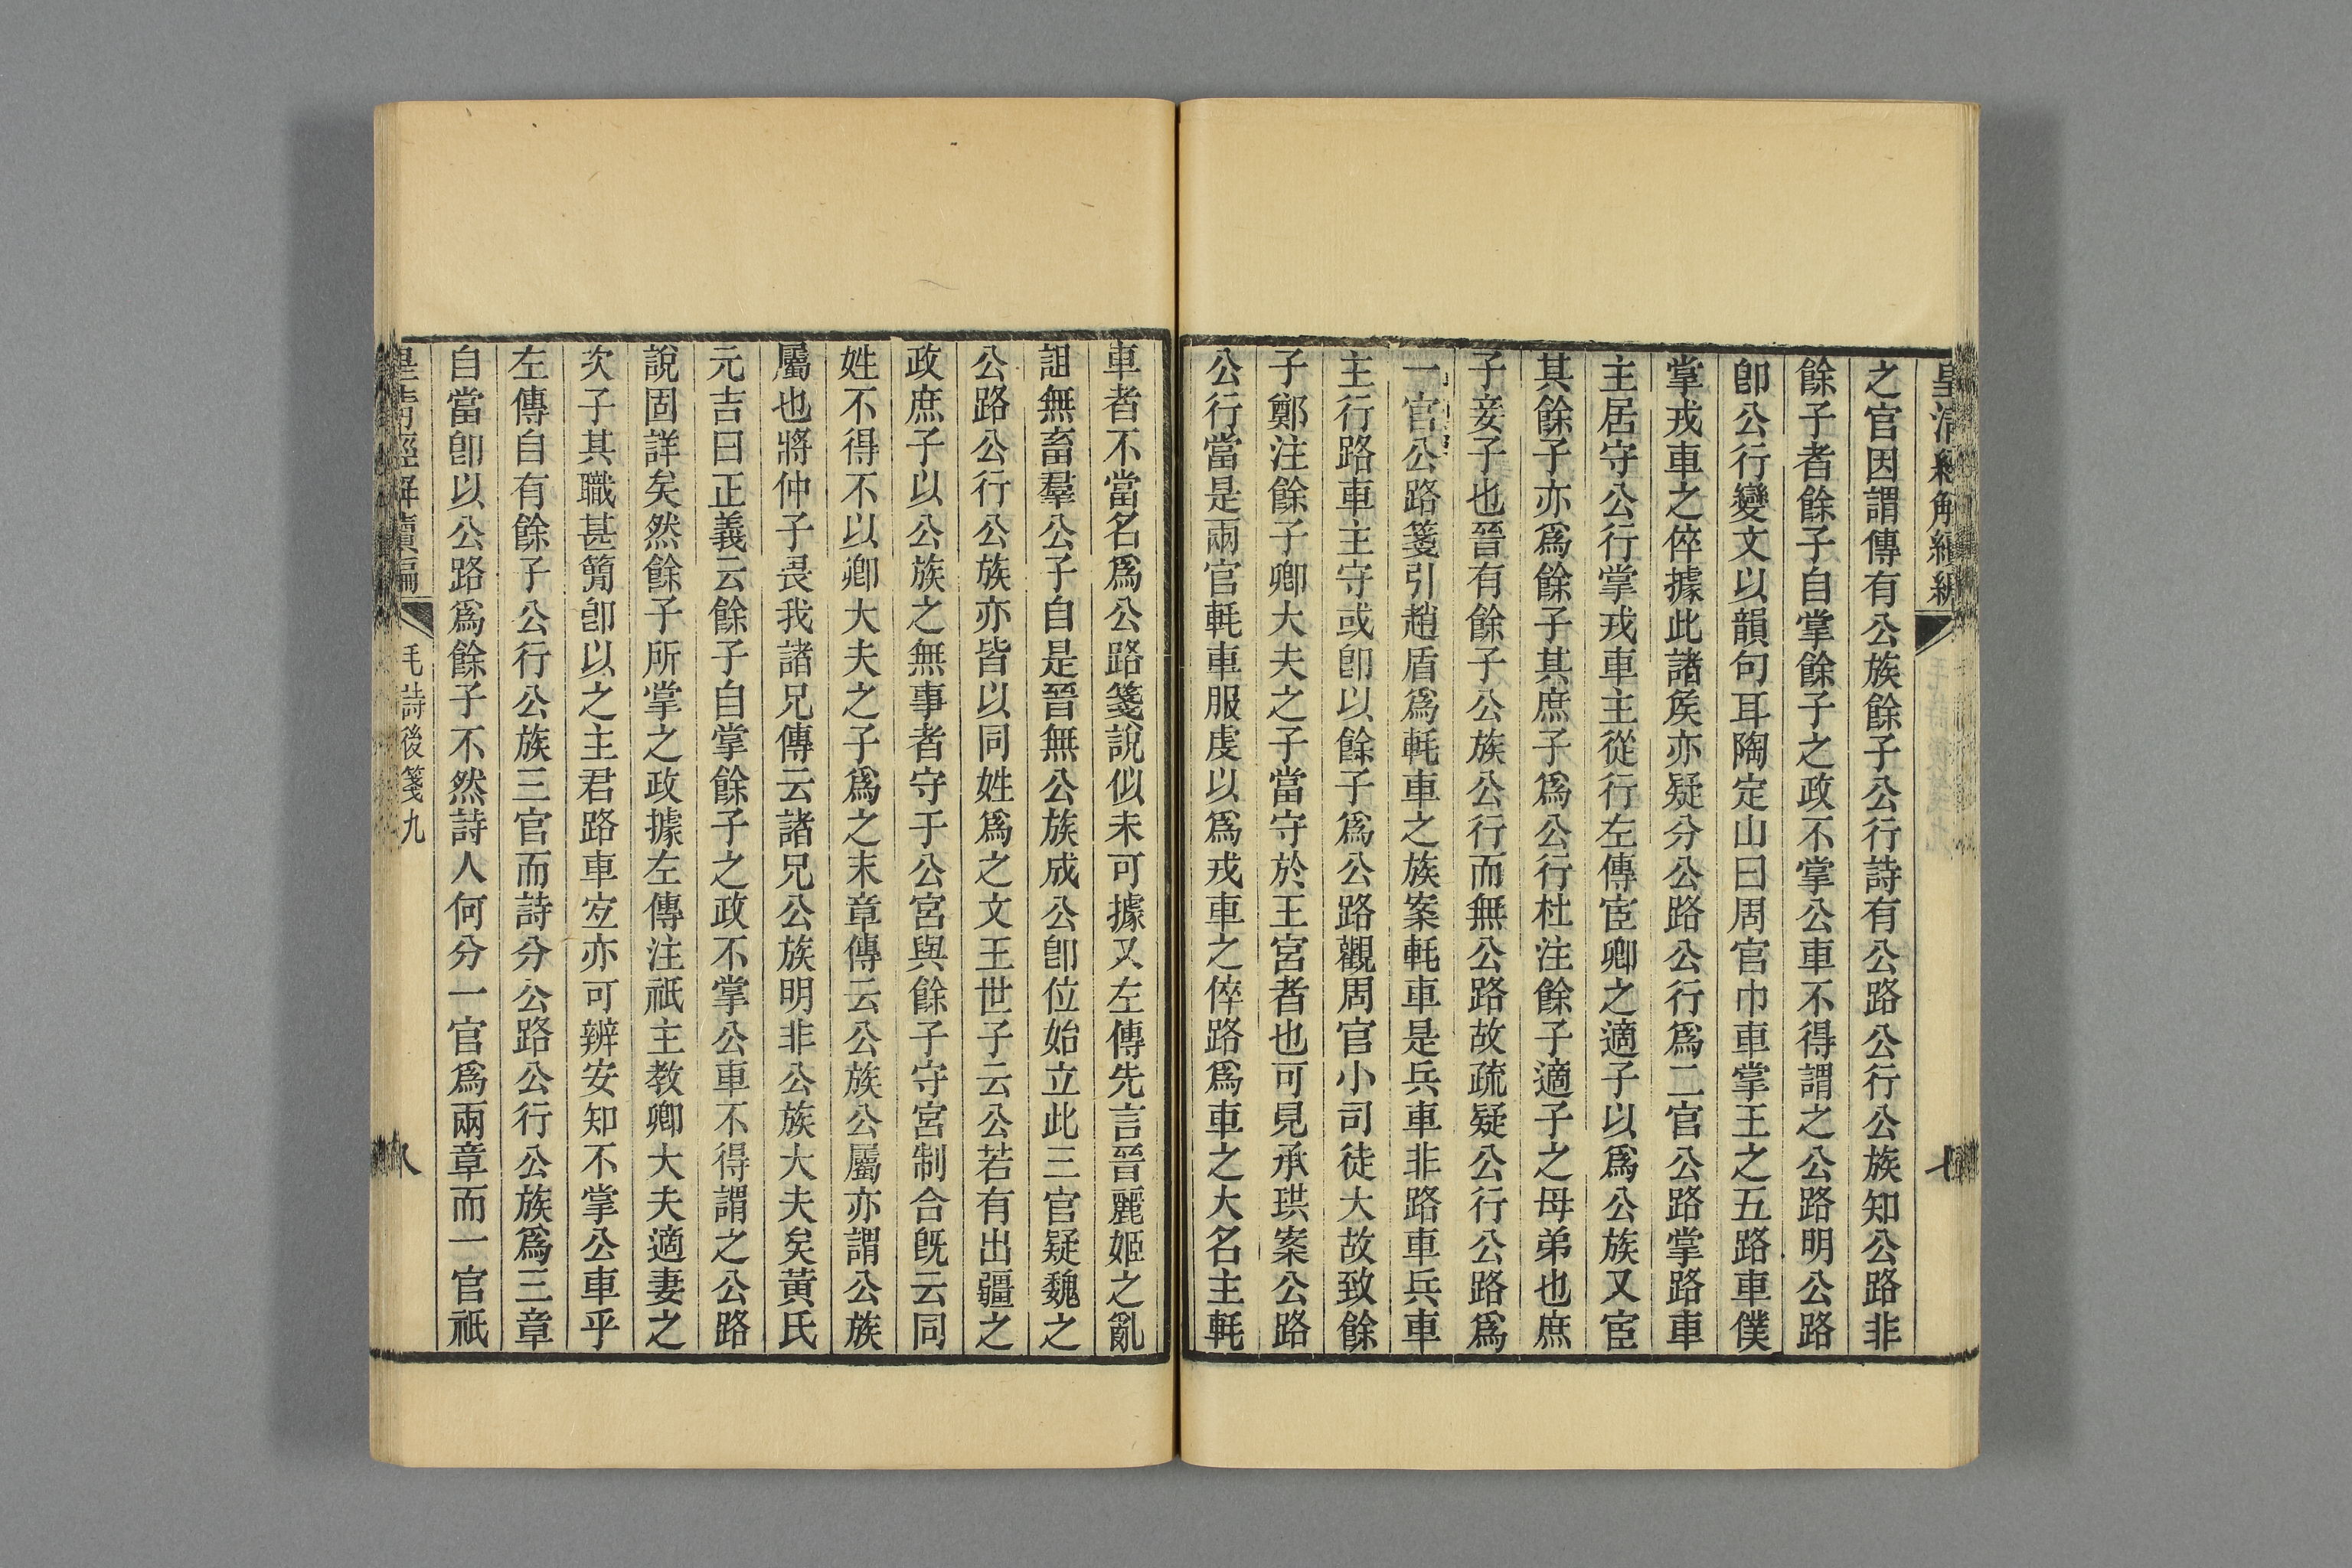 皇清經解續編
七
之官因謂傳有公族餘子公行詩有公路公行公族知公路非
餘子者餘子自掌餘子之政不掌公車不得謂之公路明公路
卽公行變文以韻句耳陶定山曰周官巾車掌王之五路車僕
掌戎車之倅據此諸矦亦疑分公路公行爲二官公路掌路車
主居守公行掌戎車主從行左傳宦卿之適子以爲公族又宦
其餘子亦爲餘子其庶子爲公行杜注餘子適子之母弟也庶
子妾子也晉有餘子公族公行而無公路故疏疑公行公路爲
一官公路箋引趙盾爲軞車之族案軞車是兵車非路車兵車
主行路車主守或卽以餘子爲公路觀周官小司徒大故致餘
子鄭注餘子卿大夫之子當守於王宮者也可見承珙案公路
公行當是兩官軞車服虔以爲戎車之倅路爲車之大名主軞
車者不當名爲公路箋說似未可據又左傳先言晉麗姬之亂
詛無畜羣公子自是晉無公族成公卽位始立此三官疑魏之
公路公行公族亦皆以同姓爲之文王世子云公若有出疆之
政庶子以公族之無事者守于公宮與餘子守宮制合旣云同
姓不得不以卿大夫之子爲之末章傳云公族公屬亦謂公族
屬也將仲子畏我諸兄傳云諸兄公族明非公族大夫矣黃氏
元吉曰正義云餘子自掌餘子之政不掌公車不得謂之公路
說固詳矣然餘子所掌之政據左傳注祇主教卿大夫適妻之
次子其職甚簡卽以之主君路車㝎亦可辨安知不掌公車乎
左傳自有餘子公行公族三官而詩分公路公行公族爲三章
自當卽以公路爲餘子不然詩人何分一官爲兩章而一官祇
皇清經解續編
毛詩後箋九
八